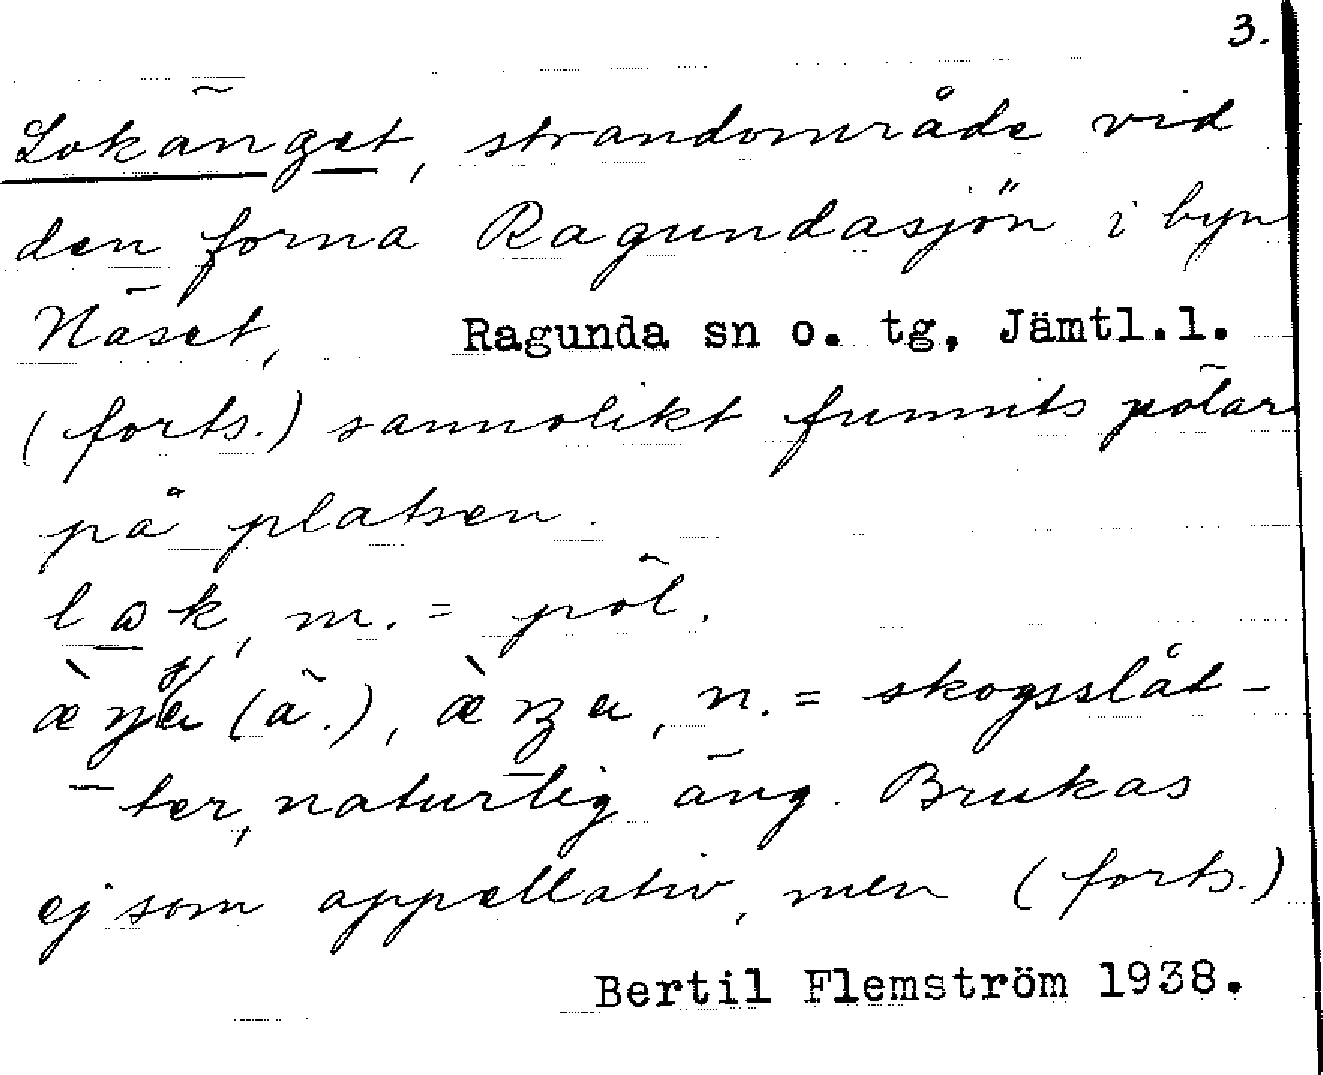 3.
Lokänget, strandområde vid
den forna Ragundasjön i byn
Näset, Ragunda sn o. tg, Jämtl.l.
(forts.) sannolikt funnits pölar
på platsen.
lək, m. = pöl.
(ä.), n. = skogsslåt-
-ter, naturlig äng. Brukas
ej som appellativ, men (forts.)
Bertil Flemström 1938.